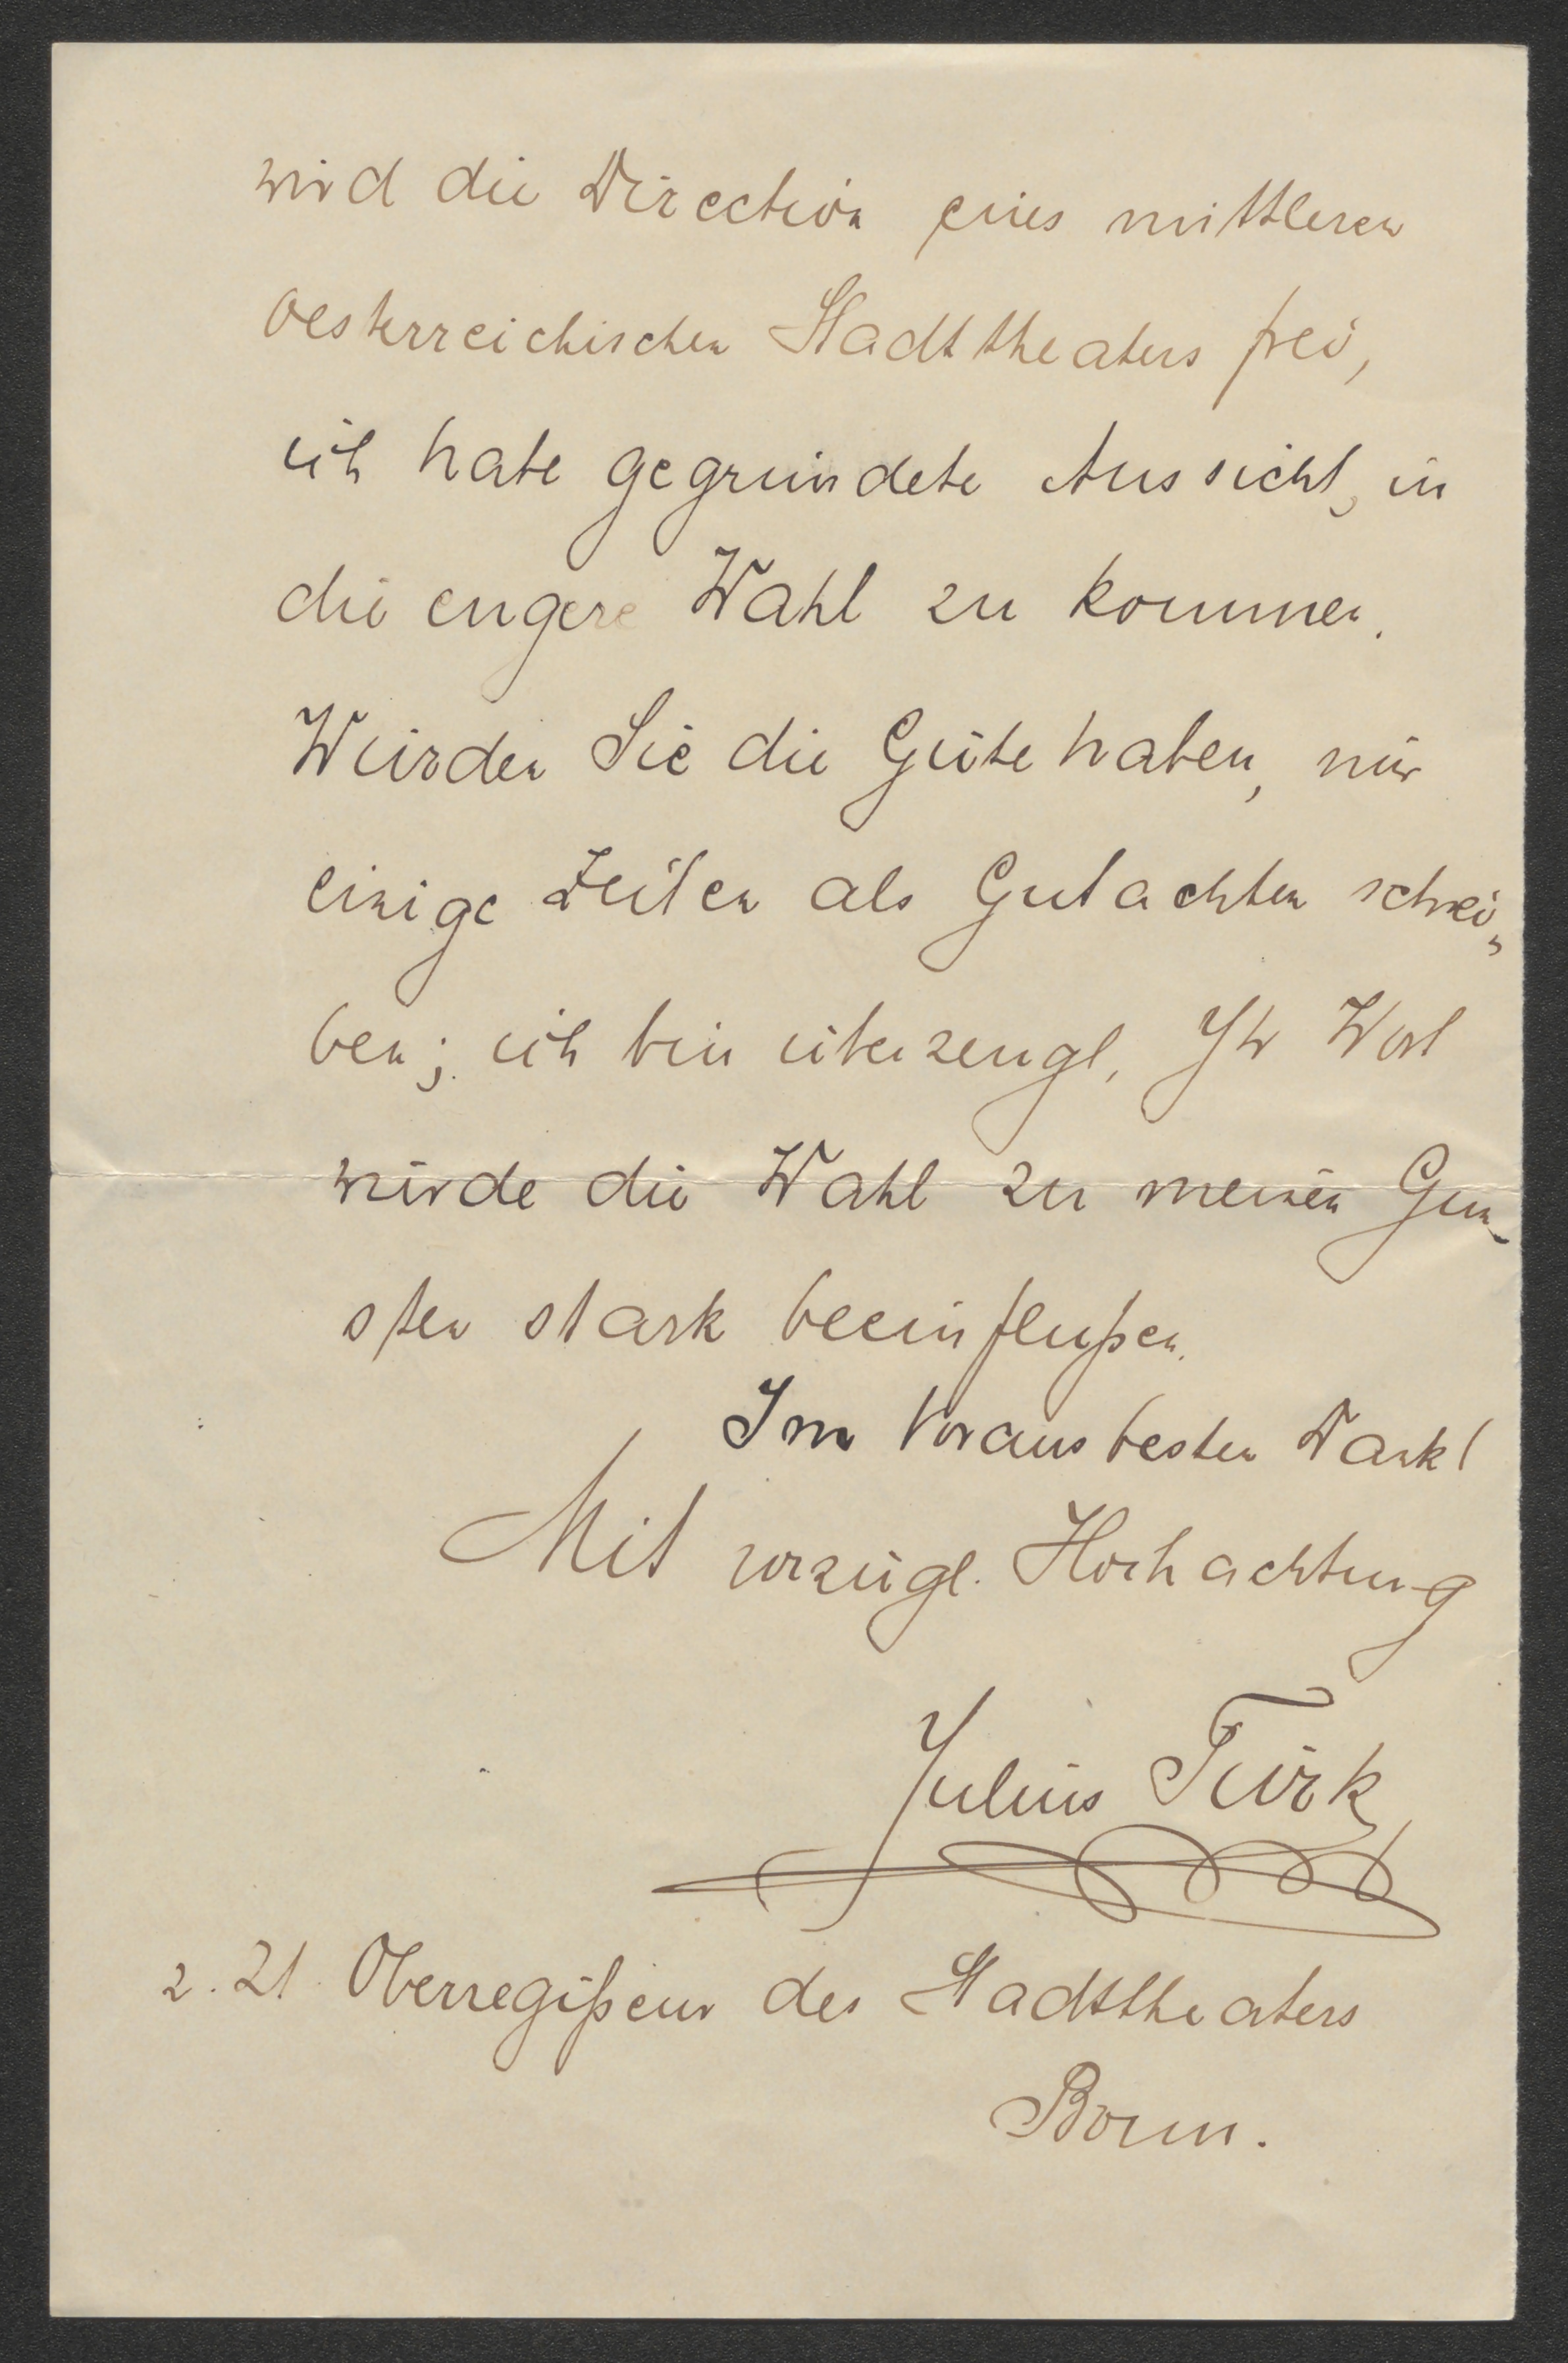 wird die Direction eines mittleren
oesterreichischen Stadttheaters frei,
ich habe gegründete Aussicht, in
die engere Wahl zu kommen.
Würden Sie die Güte haben, mir
einige Zeilen als Gutachten schrei„
ben; ich bin überzeugt, Ihr Wort
würde die Wahl zu meinen Gun-
sten stark beeinflußen.
Im Voraus besten Dank!
Mit vorzügl. Hochachtung
Julius Türk
z. Zt. Oberregißeur des Stadttheaters
Bonn.